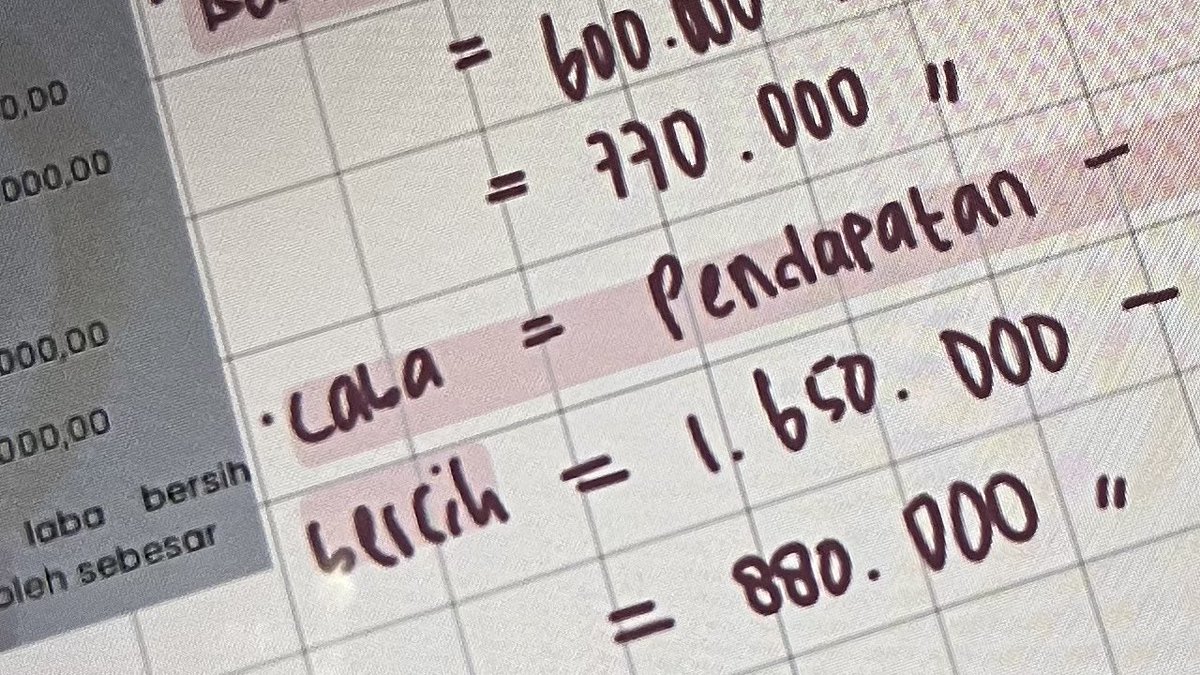 0,00
000,00
000,00
000,00
laba bersih
oleh sebesar
= 600.000
= 770.000 "
• Laba = Pendapatan -
bersih = 1.650.000 -
= 880.000 "